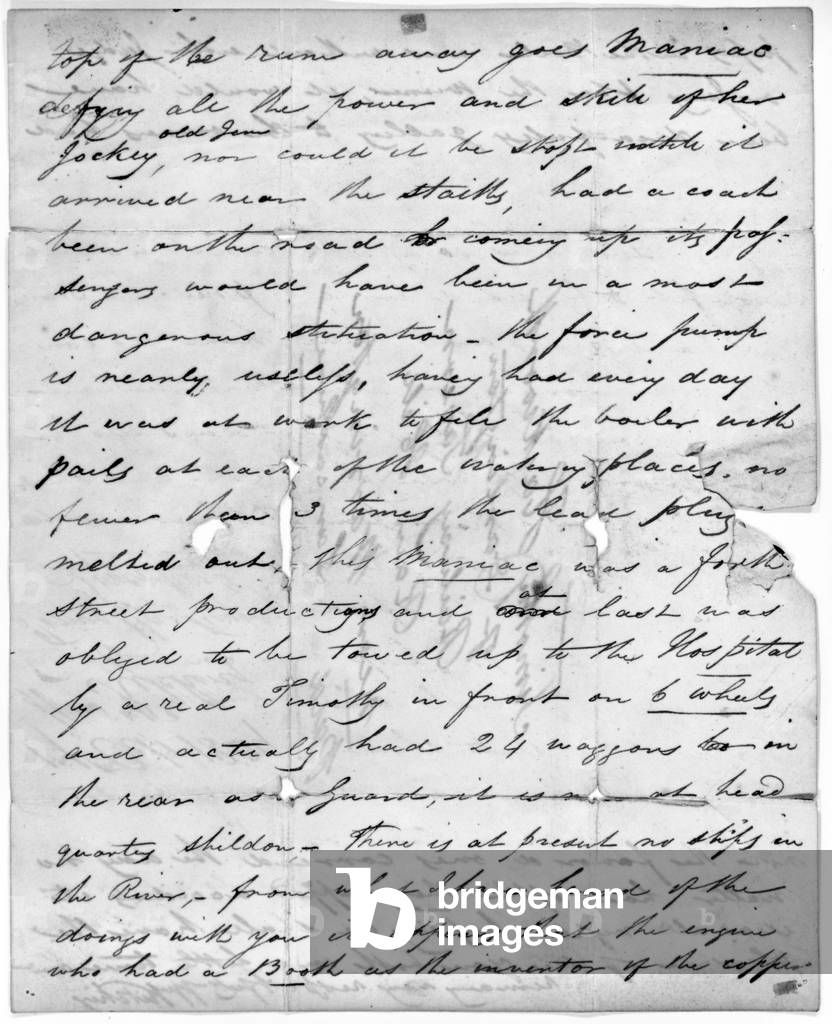 top of the run away goes Maniac
defying all the power and skill of her
old Jem
Jockey, nor could it be stopt untill it
arrived near the staiths, had a coach
been on the road coming up its pas-
sengers would have been in a most
dangerous situation - the force pump
is nearly useless, having had every day
it was at work to fill the boiler with
pails at each of the watering places. no
fewer than 3 times the lead plug
melted out, this Maniac was a forth
street production, and at last was
obliged to be towed up to the Hospital
by a real Timothy in front on 6 wheels
and actually had 24 waggons in
the rear as Guard, it is at head
quarters Shildon - There is at present no ships in
the River, - from what I have heard of the
doings with you it that the engine
who had a Booth as the inventor of the copper
b bridgeman
images